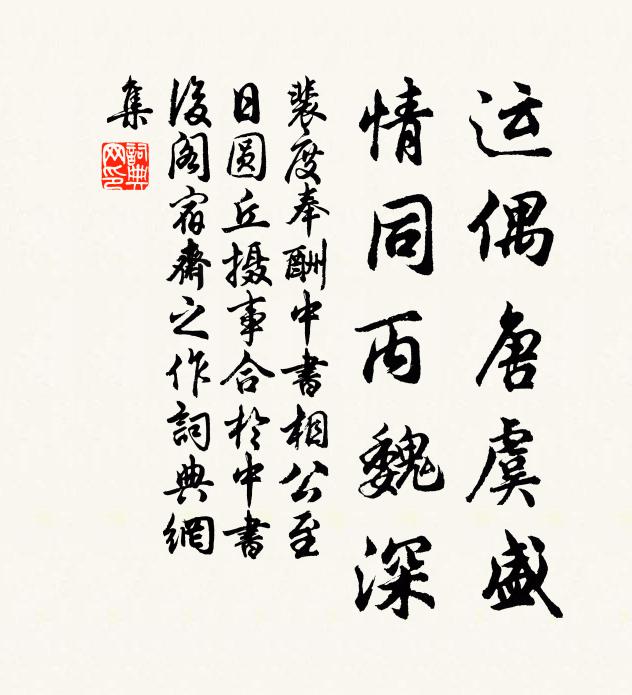 运偶唐虞盛
情同丙魏深
裴度奉酬中书相公至
日圆丘摄事合于中书
後阁宿斋之作詞典網
集
詞典
网印